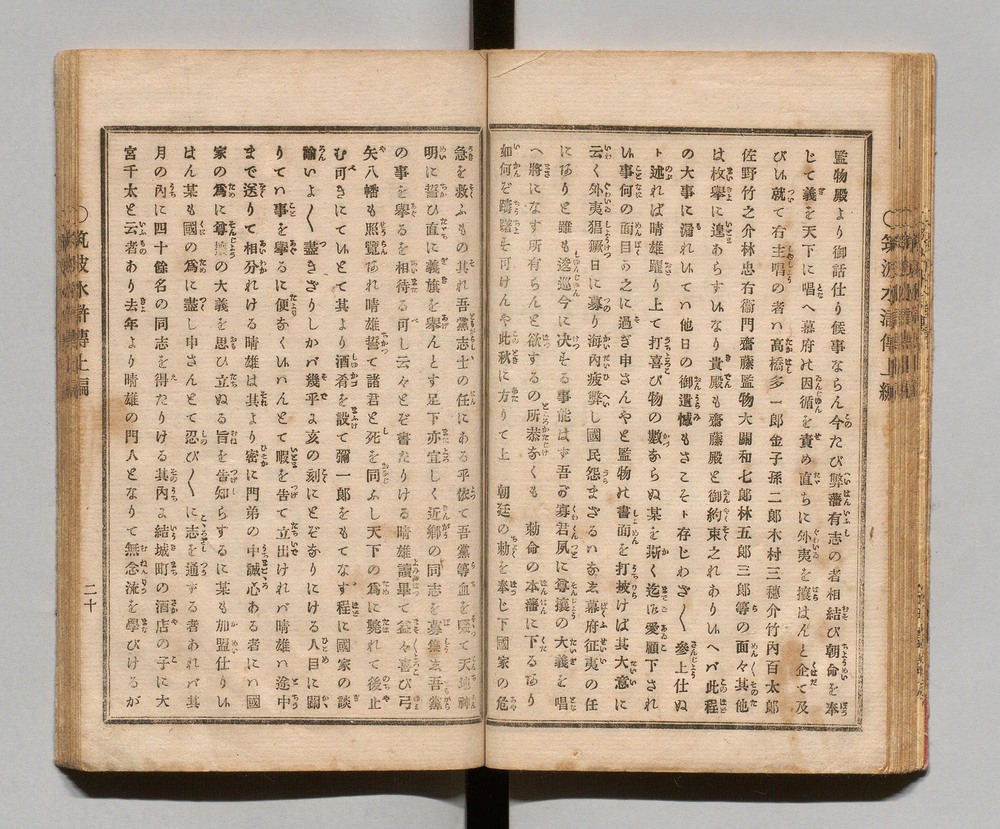 監物殿より御話仕り候事ならん今たび弊藩有志の者相結び朝命を奉
じて義を天下に唱へ幕府の因循を責め直ちに外夷を攘はんと企て及
び就て右主唱の者ハ高橋多一郎金子孫二郎木村三穗介竹內百太郎
佐野竹之介林忠右衞門齋藤監物大關和七郎林五郎三郎等の面々其他
は枚擧に遑あらずいなり貴殿も齋藤殿と御約束これありいへバ此程
の大事に漏れいてハ他日の御遺憾もさこそト存じわざ〳〵參上仕ぬ
ト述れば晴雄躍り上て打喜び物の數ならぬ某を斯く迄に愛顧下され
い事何の面目か之に過ぎ申さんやと監物の書面を打披けば其大意に
云く外夷猖獗日に募り海內疲弊し國民怨まざるハなゑ幕府征夷の任
にありと雖も逡巡今に决する事能はず吾が寡君夙に尊攘の大義を唱
へ將になす所有らんと欲するの所恭なくも　勅命の本藩に下るあり
如何ぞ躊躇そ可けんや此秋に方りて上　朝廷の勅を奉じ下國家の危
急を救ふもの其れ吾黨志士の任にある乎依て吾黨等血を啜て天地神
明に誓ひ直に義旗を擧んとす足下亦宜しく近鄉の同志を募集ゑ吾黨
の事を擧るを相待る可し云々とぞ書たりける晴雄讀畢て益々喜び弓
矢八幡も照覽あれ晴雄誓て諸君と死を同ふし天下の爲に斃れて後止
む可きにていと とて其より酒肴を設て彌一郎をもてなす程に國家の談
論いよ〳〵盡きざりしかバ幾乎よ亥の刻にとぞなりにける人目に關
りてハ事を擧るに便なくいハんとて暇を告て立出けれバ晴雄ハ途中
まで送りて相分れける晴雄は其より密に門弟の中誠心ある者にハ國
家の爲に尊攘の大義を思ひ立ぬる旨を告知らするに某も加盟仕りい
はん某も國の爲に盡し申さんとて忍び〳〵に志を通ずる者あれバ其
月の內に四十餘名の同志を得たりける其內よ結城町の酒店の子に大
宮千太と云者あり去年より晴雄の門人となりて無念流を學びけるが
二十
〇筑波水滸傳上編